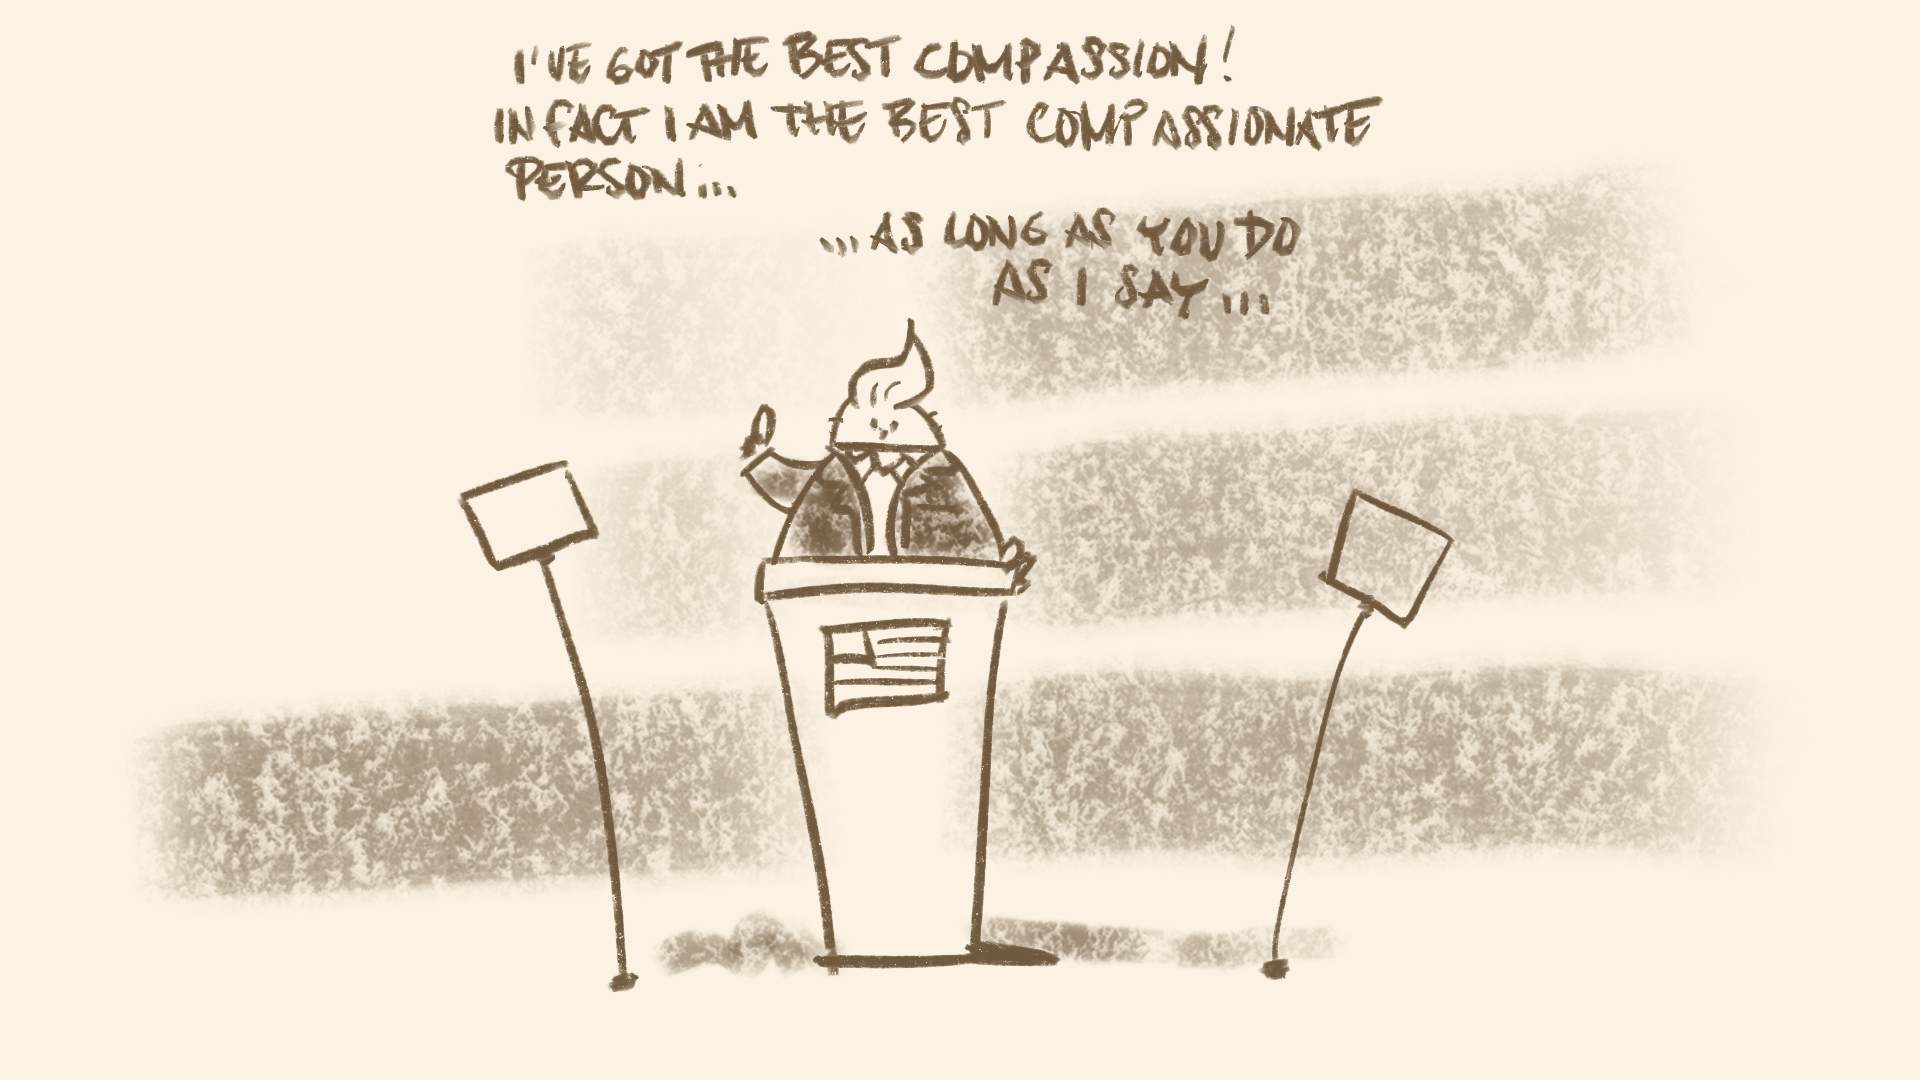 I'VE GOT THE BEST COMPASSION!
IN FACT I AM THE BEST COMPASSIONATE
PERSON...
...AS LONG AS YOU DO
AS I SAY...